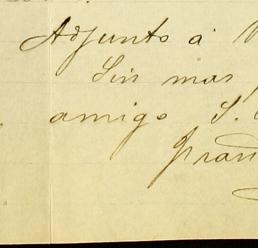 Adjunto á
Sin mas
amigo S.
Fran